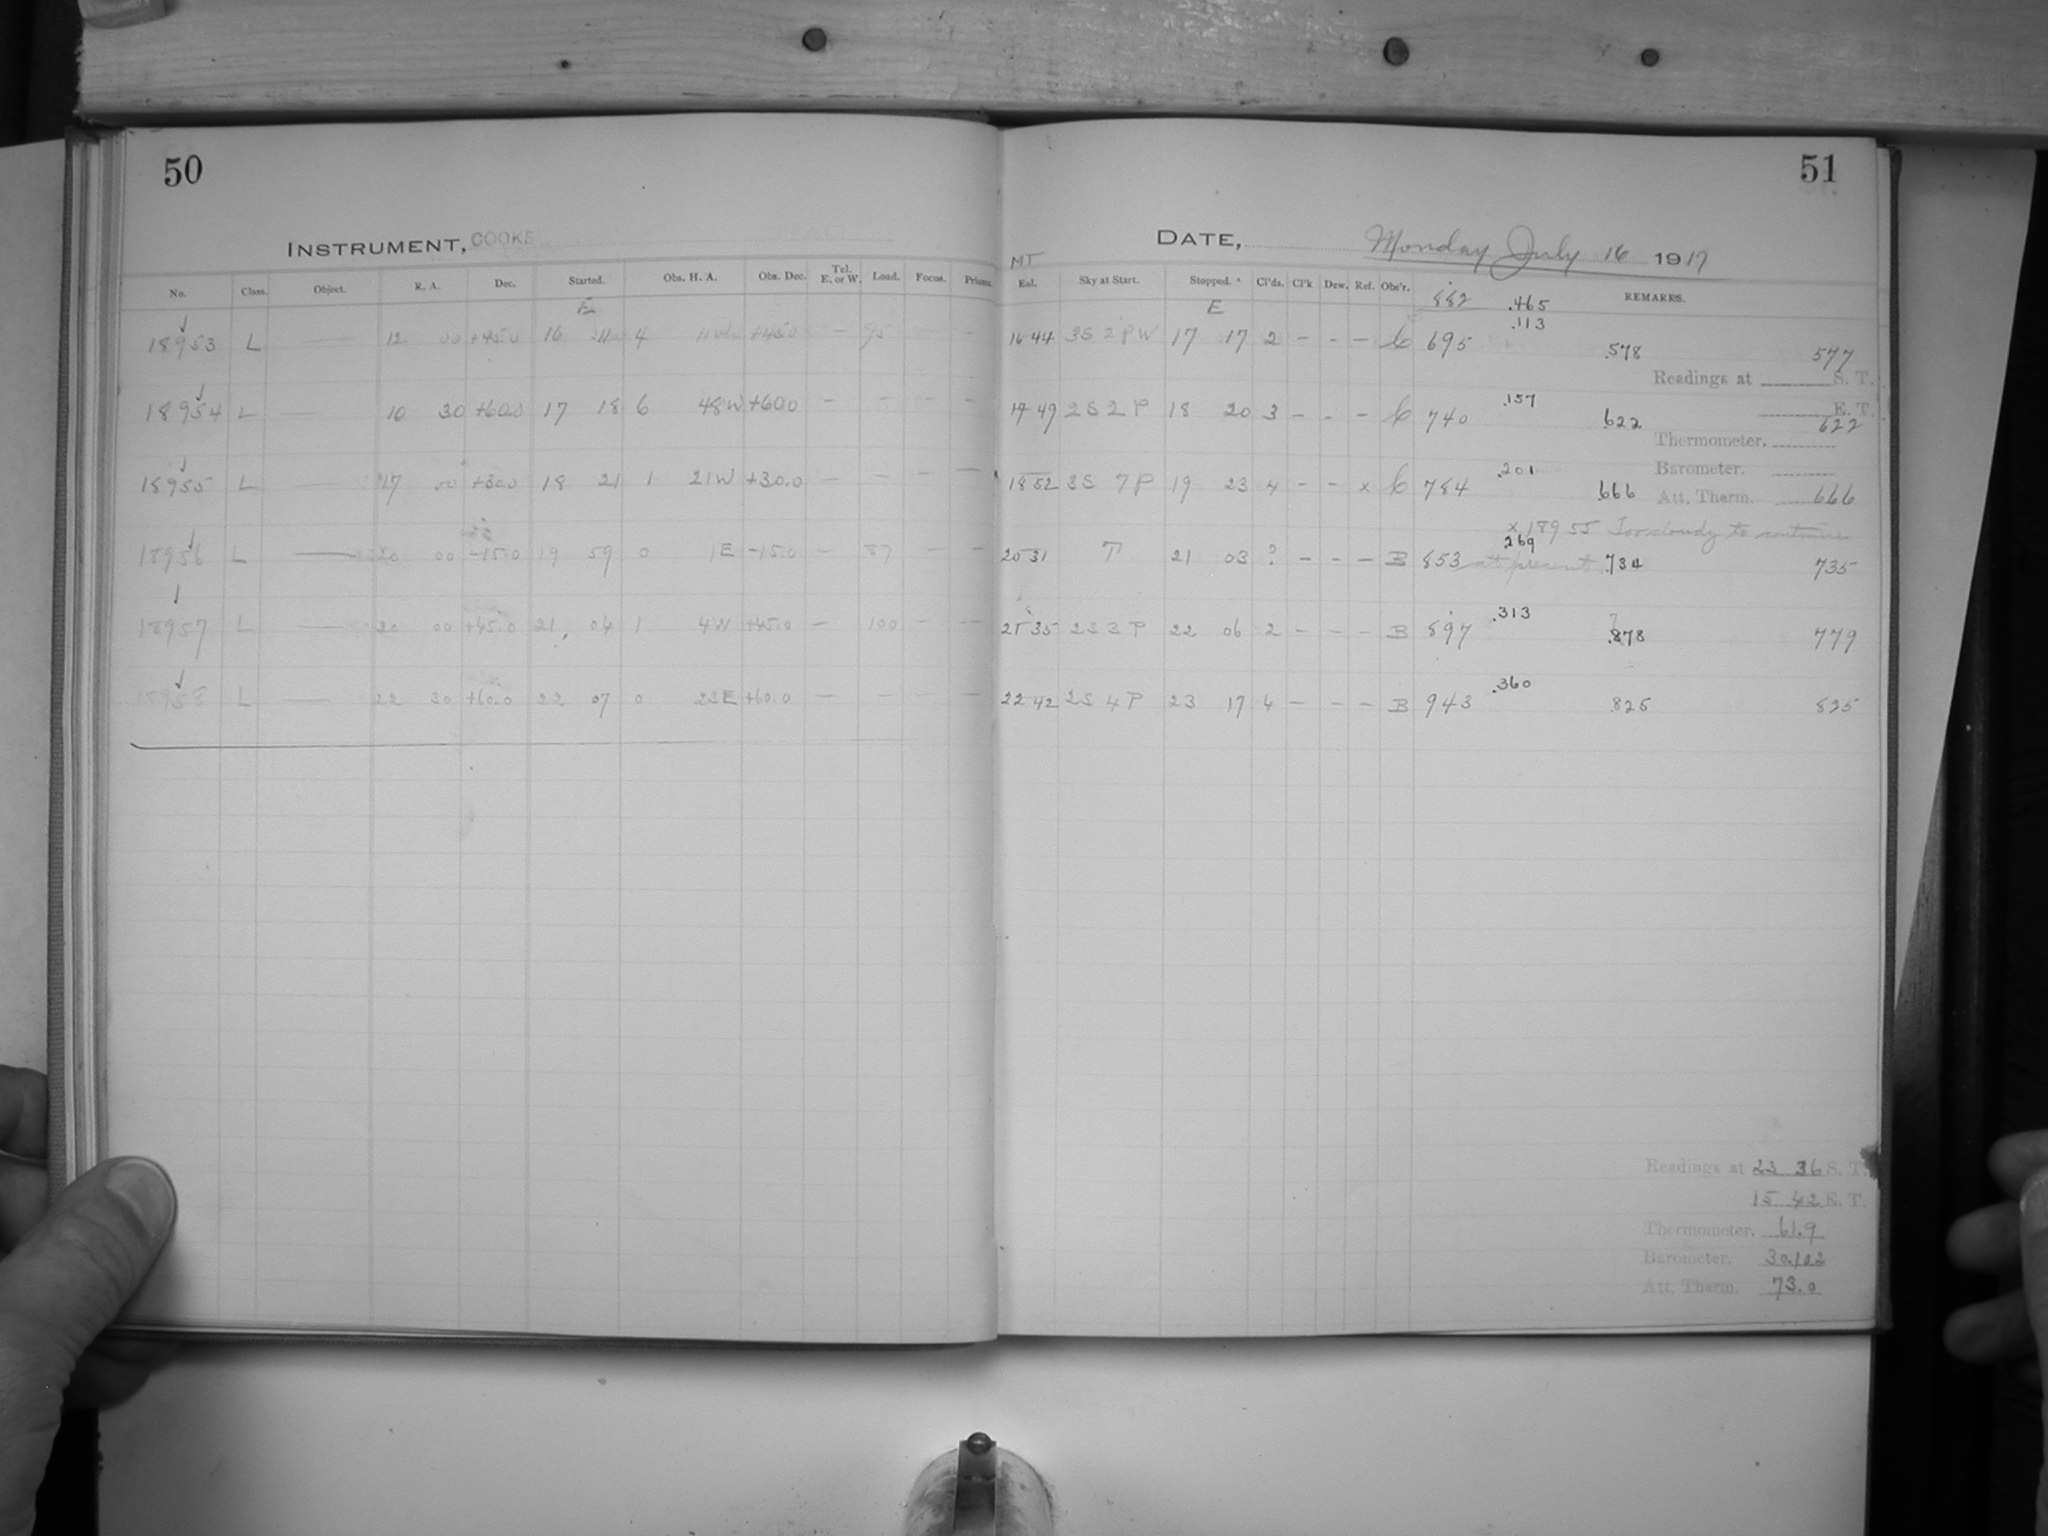 50
INSTRUMENT, COOKE
No. Class. Object. R. A. Dec. Started. Obs. H. A. Obs. Dec. Tel. E. or W. Load. Focus. Prisms.
E
18953 L — 12 00 +45.0 16 4 +45.0 — 95 — —
18954 L — 10 30 +60.0 17 18 6 48W +60.0 — — — —
18955 L — 17 00 +30.0 18 21 1 21W +30.0 — — — —
18956 L — 20 00 -15.0 19 59 0 1E -15.0 — 87 — —
18957 L — 20 00 +45.0 21 04 1 4W +45.0 — 100 — —
18958 L — 22 30 +60.0 22 07 0 23E +60.0 — — — —
51
DATE, Monday July 16 1917
MT
Eol. Sky at Start. Stopped. Cl'ds. Cl'k Dew. Ref. Obs'r. REMARKS.
E 882 .465
.113
16 44 3S 2PW 17 17 2 - - - C 695 .578 577
Readings at S. T.
.157 E. T.
17 49 2S 2P 18 20 3 - - - C 740 .622 622
Thermometer.
Barometer.
.201
18 52 3S 7P 19 23 4 - - x C 784 .666 Att. Therm. 666
x 18955 Too cloudy to continue
.269
20 31 T 21 03 ? - - - B 853 at present .734 735
.313
21 35 2S 3P 22 06 2 - - - B 897 .878 779
7
.360
22 42 2S 4P 23 17 4 - - - B 943 .825 825
Readings at 23 36 S. T.
15 42 E. T.
Thermometer. 61.9
Barometer. 30.102
Att. Therm. 73.0